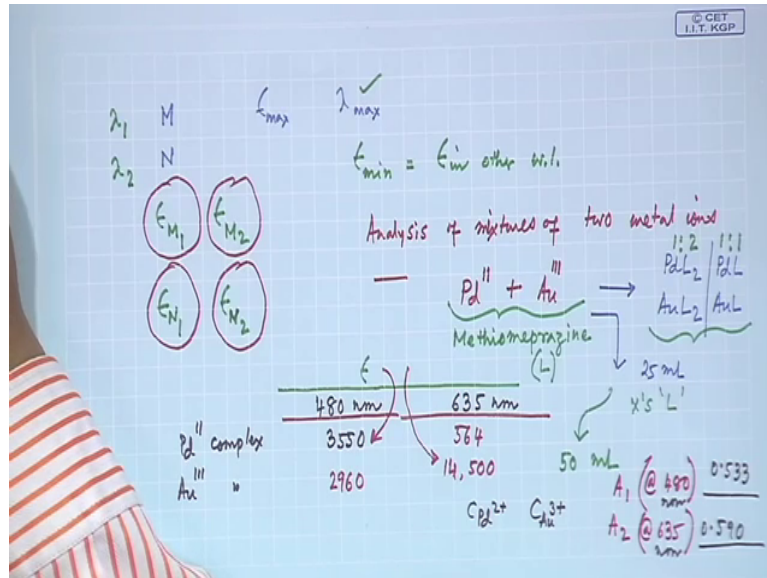 © CET
I.I.T. KGP
λ1 M ϵmax λmax ✓
λ2 N ϵmin = ϵ in other w.l.
ϵM1 ϵM2
ϵN1 ϵN2
Analysis of mixtures of two metal ions
— PdII + AuIII →
1:2 | 1:1
PdL2 | PdL
AuL2 | AuL
Methiomeprazine
(L)
25 mL
X's 'L'
50 mL
ϵ
480 nm 635 nm
PdII complex 3550 564
AuIII " 2960 14,500
CPd2+ CAu3+
A1 (@ 480 nm) 0.533
A2 (@ 635 nm) 0.590